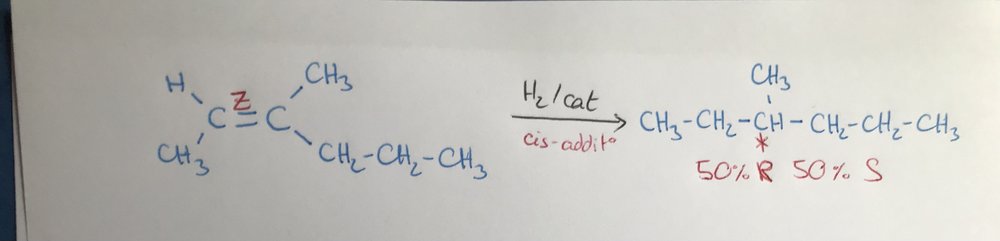 H CH₃
Z
C=C
CH₃ CH₂-CH₂-CH₃
H₂/cat
cis-additº
CH₃
CH₃-CH₂-CH-CH₂-CH₂-CH₃
*
50% R 50% S